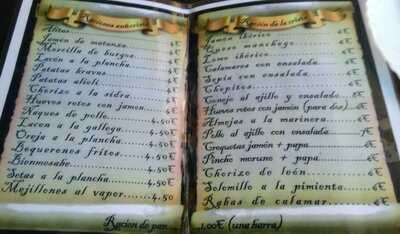 Raciones
Alitas 4€
Jamón de matanza 4€
Morcilla de burgos 4€
Lacón a la plancha 4€
Patatas bravas 4€
Patatas alioli 4€
Chorizo a la sidra 4€
Huevos rotos con jamón 4€
Taques de pollo 4.50€
Lacon a la gallega 4.50€
Oreja a la plancha 4.50€
Boquerones fritos 4.50€
Bienmesabe 4.50€
Setas a la plancha 4.50€
Mejillones al vapor 4.50
Racion de pan
Ración de la crisis
Jamón ibérico 6€
Queso manchego 6€
Lomo ibérico 6€
Calamares con ensalada 6€
Sepia con ensalada 6€
Chopitos 6€
Conejo al ajillo y ensalada 6€
Huevos rotos con jamón (para dos) 6€
Almejas a la marinera 6€
Pollo al ajillo con ensalada 7€
Croquetas jamón + papa 6€
Pincho moruno + papa 6€
Chorizo de león 6€
Solomillo a la pimienta 6€
Rabas de calamar 6€
1.00€ (una barra)